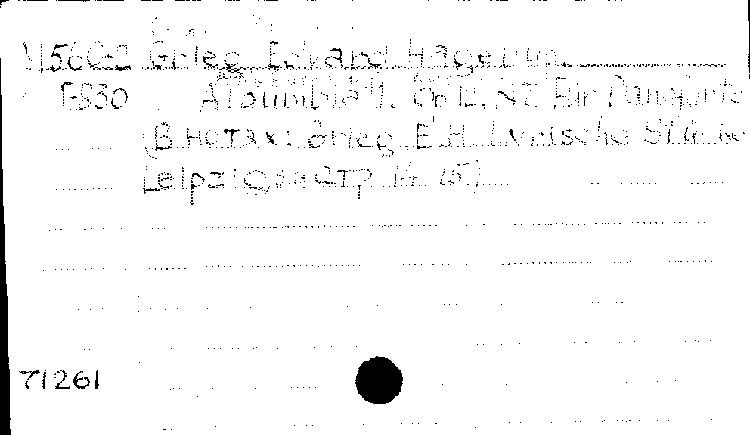 M560-2 Grieg Edvard Hagerup.
Г-830 Albumblatt. Op 12. N7. Für Pianoforte
(В нотах: Grieg E.H. Lyrische Stücke
Leipzig
71261